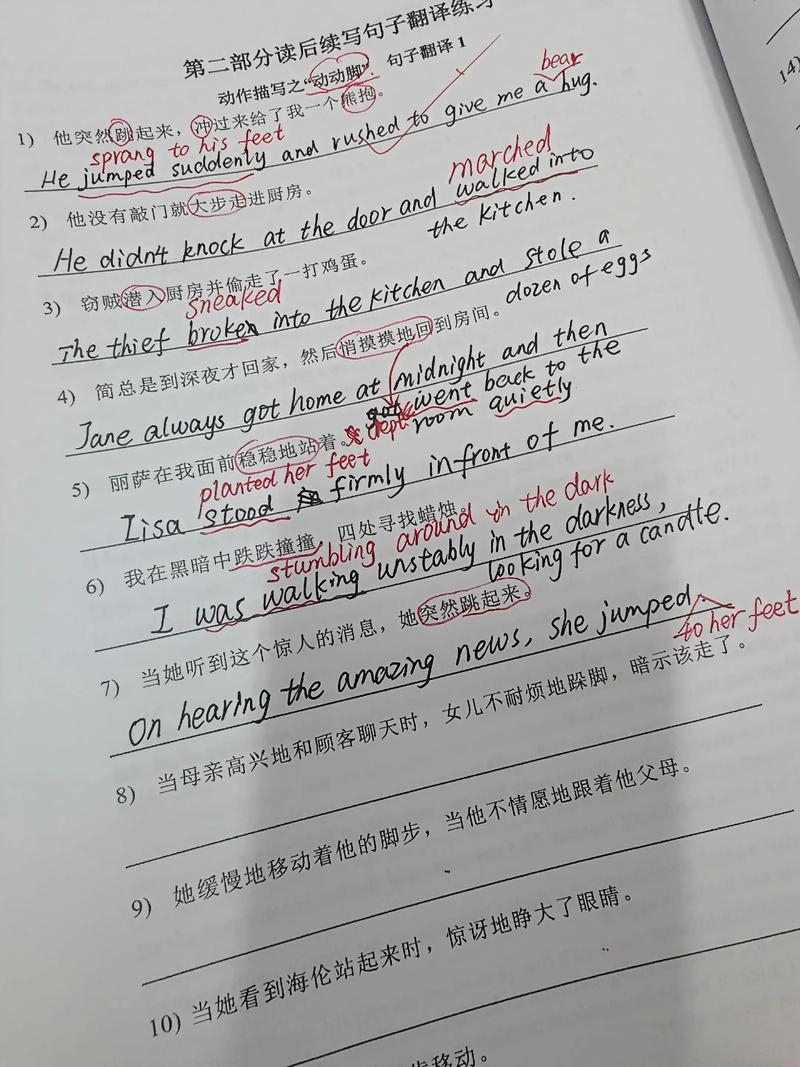 第二部分读后续写句子翻译练习
动作描写之“动动脚”. 句子翻译 1
bear
1) 他突然跳起来，冲过来给了我一个熊抱。
sprang to his feet
He jumped suddenly and rushed to give me a hug.
marched
2) 他没有敲门就大步走进厨房。
He didn't knock at the door and walked into
the kitchen.
3) 窃贼潜入厨房并偷走了一打鸡蛋。
sneaked
The thief broken into the kitchen and stole a
dozen of eggs
4) 简总是到深夜才回家，然后悄摸摸地回到房间。
Jane always got home at midnight and then
got went back to the
crept room quietly
5) 丽萨在我面前稳稳地站着。
planted her feet
Lisa stood firmly infront of me.
6) 我在黑暗中跌跌撞撞，四处寻找蜡烛。
stumbling around in the dark
I was walking unstably in the darkness,
looking for a candle.
7) 当她听到这个惊人的消息，她突然跳起来。
On hearing the amazing news, she jumped.
to her feet
8) 当母亲高兴地和顾客聊天时，女儿不耐烦地跺脚，暗示该走了。
9) 她缓慢地移动着他的脚步，当他不情愿地跟着他父母。
10) 当她看到海伦站起来时，惊讶地睁大了眼睛。
步移动。
14)